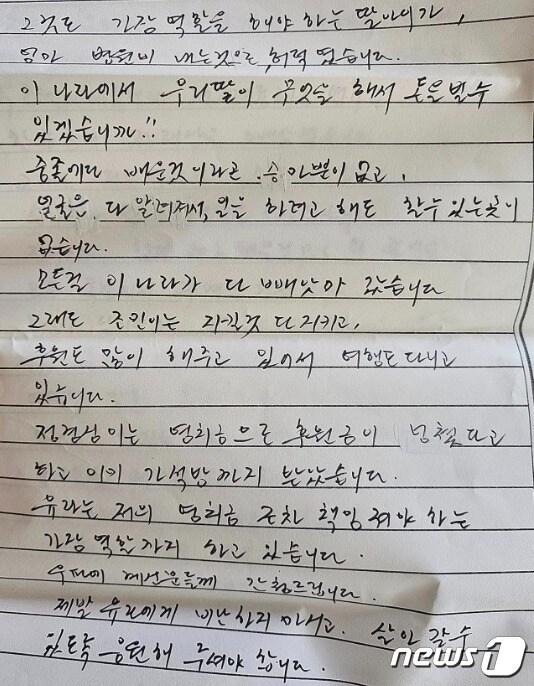 그것도 가장 역할을 해야 하는 딸아이가,
엄마 병원비 내는것으로 허덕 였습니다.
이 나라에서 우리딸이 무엇을 해서 돈을벌수
있겠습니까!!
중졸에다 배운것이라곤 승마뿐이 없고,
얼굴은 다 알려져서, 일을 하려고 해도 할수있는곳이
없습니다.
모든걸 이 나라가 다 빼앗아 갔습니다
그래도 조민이는 자긴것 다 지키고,
후원도 많이 해주고 있어서 여행도 다니고
있습니다.
정경심이는 영치금으로 후원금이 넘쳤다고
하고 이미 가석방까지 받았습니다.
유라는 저의 영치금 조차 책임 져야 하는
가장 역할까지 하고 있습니다.
우파에 계신분들께 간청드립니다.
제발 유라에게 비난하지 마시고, 살아 갈수
있도록 응원해 주셔야 합니다.
news1